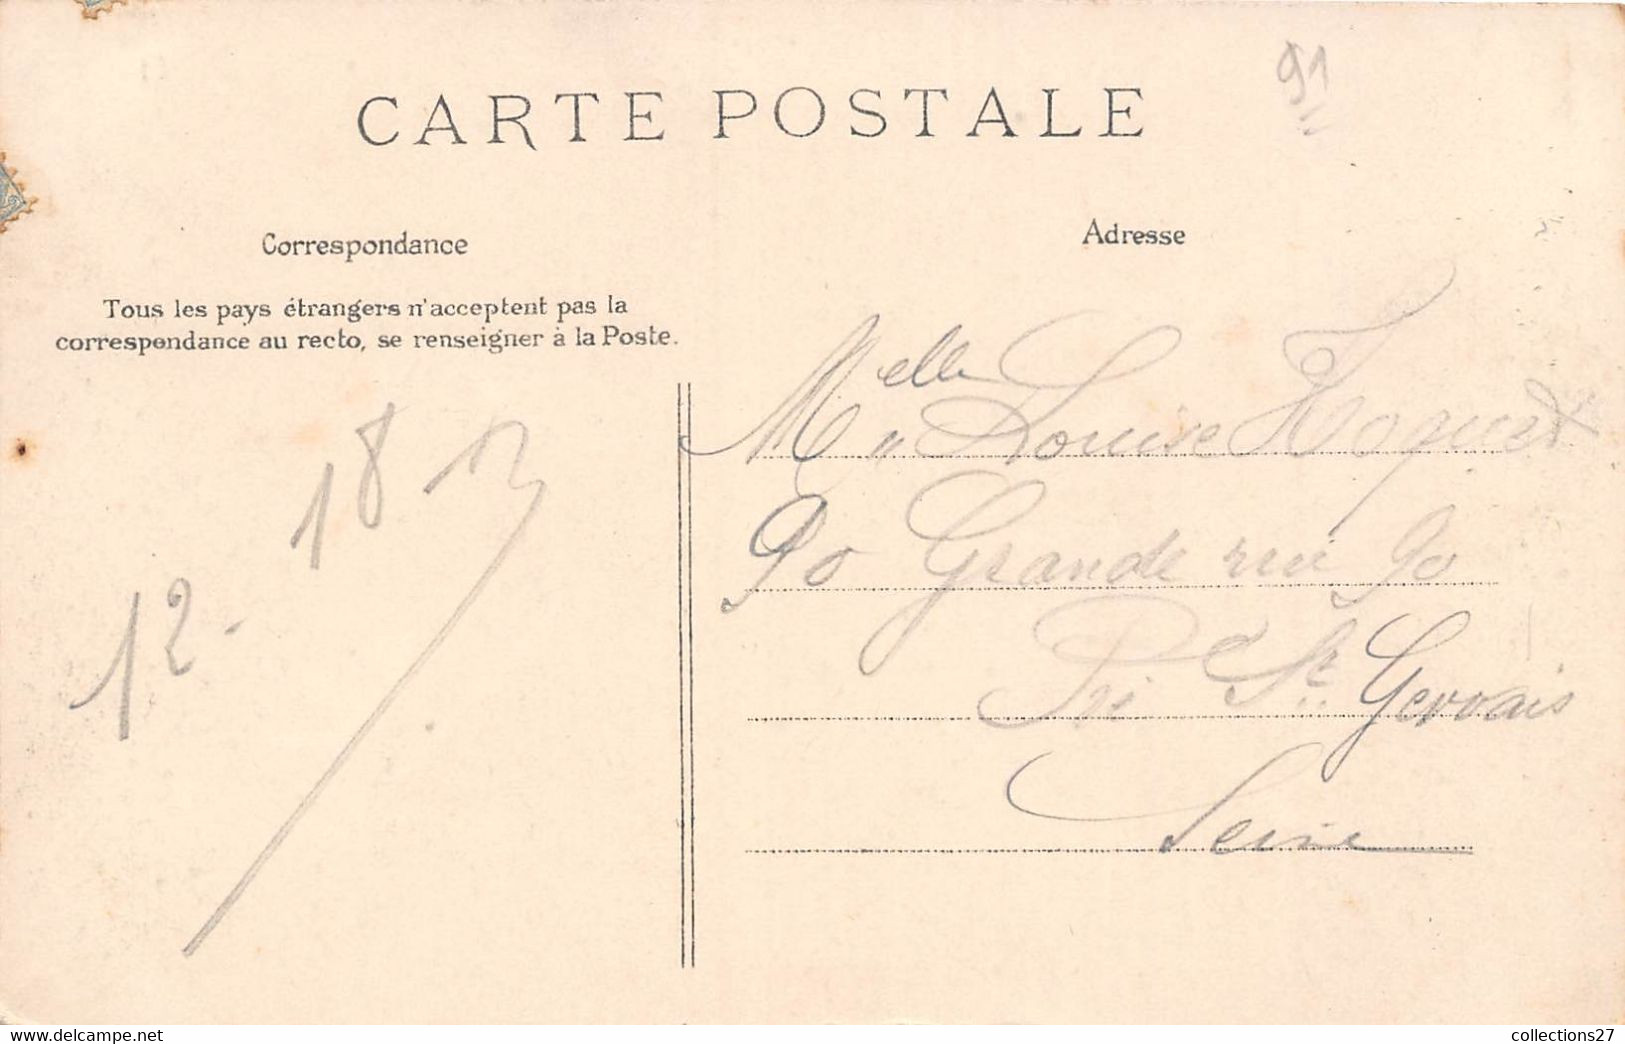 91
CARTE POSTALE
Correspondance
Tous les pays étrangers n'acceptent pas la
correspondance au recto, se renseigner à la Poste.
12 - 18
Adresse
Melle Louise
90 Grande rue 90
Pré St Gervais
Seine
www.delcampe.net
collections27